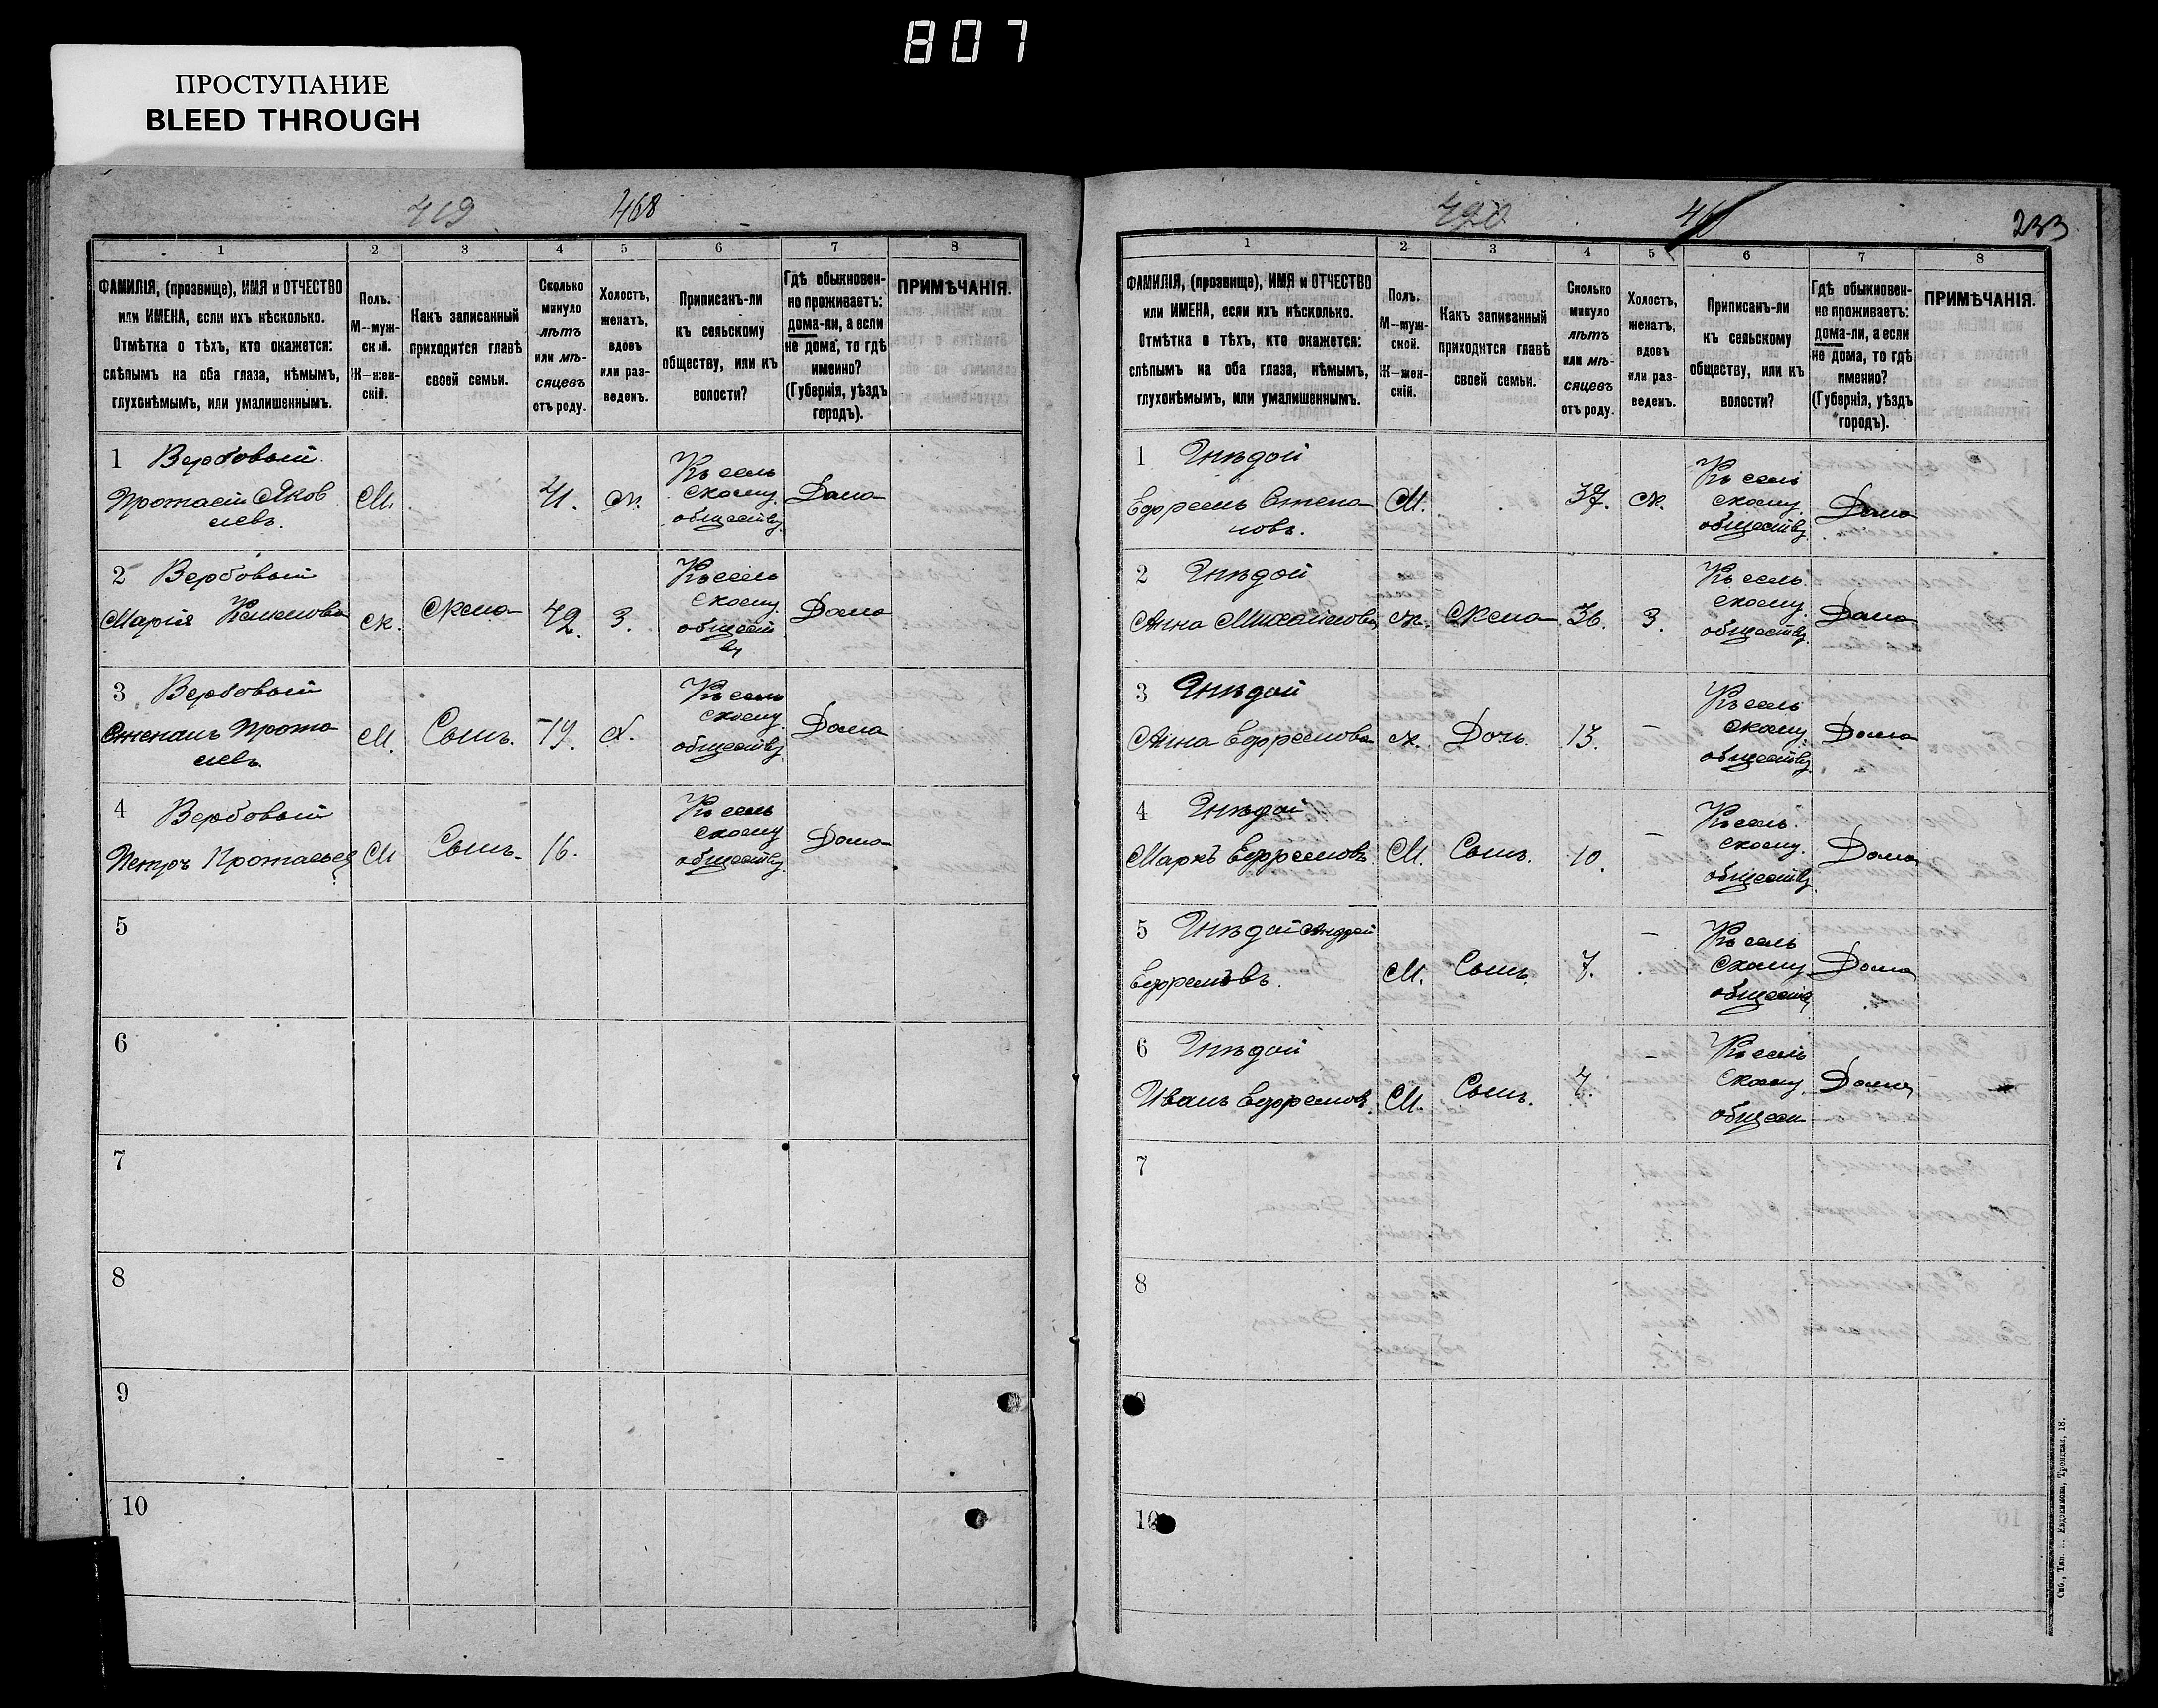 807
ПРОСТУПАНИЕ
BLEED THROUGH
419 468
1 2 3 4 5 6 7 8
ФАМИЛІЯ, (прозвище), ИМЯ и ОТЧЕСТВО
или ИМЕНА, если ихъ нѣсколько.
Отмѣтка о тѣхъ, кто окажется:
слѣпымъ на оба глаза, нѣмымъ,
глухонѣмымъ, или умалишеннымъ.
Полъ.
М—муж-
ской.
Ж—жен-
скій.
Какъ записанный
приходится главѣ
своей семьи.
Сколько
минуло
лѣтъ
или мѣ-
сяцевъ
отъ роду.
Холостъ,
женатъ,
вдовъ
или раз-
веденъ.
Приписанъ-ли
къ сельскому
обществу, или къ
волости?
Гдѣ обыкновен-
но проживаетъ:
дома-ли, а если
не дома, то гдѣ
именно?
(Губернія, уѣздъ
городъ).
ПРИМѢЧАНІЯ.
1 Вербовый
Протасій Яков
левъ.
М.
41.
ж.
Къ сель
скому
обществу
Дома
2 Вербовый
Марія
ж.
Жена
42
З.
Къ сель
скому
обществ
ву
Дома
3 Вербовый
Степанъ Прота
М.
Сынъ.
19.
х.
Къ сель
скому
обществу
Дома
4 Вербовый
Петръ Протасьев
М
Сынъ
16.
Къ сель
скому
обществу
Дома
5
6
7
8
9
10
420 233
1 2 3 4 5 6 7 8
ФАМИЛІЯ, (прозвище), ИМЯ и ОТЧЕСТВО
или ИМЕНА, если ихъ нѣсколько.
Отмѣтка о тѣхъ, кто окажется:
слѣпымъ на оба глаза, нѣмымъ,
глухонѣмымъ, или умалишеннымъ.
Полъ.
М—муж-
ской.
Ж—жен-
скій.
Какъ записанный
приходится главѣ
своей семьи.
Сколько
минуло
лѣтъ
или мѣ-
сяцевъ
отъ роду.
Холостъ,
женатъ,
вдовъ
или раз-
веденъ.
Приписанъ-ли
къ сельскому
обществу, или къ
волости?
Гдѣ обыкновен-
но проживаетъ:
дома-ли, а если
не дома, то гдѣ
именно?
(Губернія, уѣздъ
городъ).
ПРИМѢЧАНІЯ.
1 Гнѣдой
Ефремъ Степа
новъ.
М.
37.
ж.
Къ сель
скому
обществу
Дома
2 Гнѣдой
Анна Михайлова
ж.
Жена
36.
З.
Къ сель
скому
обществу
Дома
3 Гнѣдой
Анна Ефремова
ж.
Дочь.
13.
—
Къ сель
скому
обществу
Дома
4 Гнѣдой
Маркъ Ефремовъ
М.
Сынъ.
10.
—
Къ сель
скому
обществу
Дома
5 Гнѣдой Андрей
Ефремовъ.
М.
Сынъ.
7.
—
Къ сель
скому
обществу
Дома
6 Гнѣдой
Иванъ Ефремовъ.
М.
Сынъ.
4.
—
Къ сель
скому
общест
Дома
7
8
9
10
Спб., Тип. Евдокимова, Троицкая, 18.